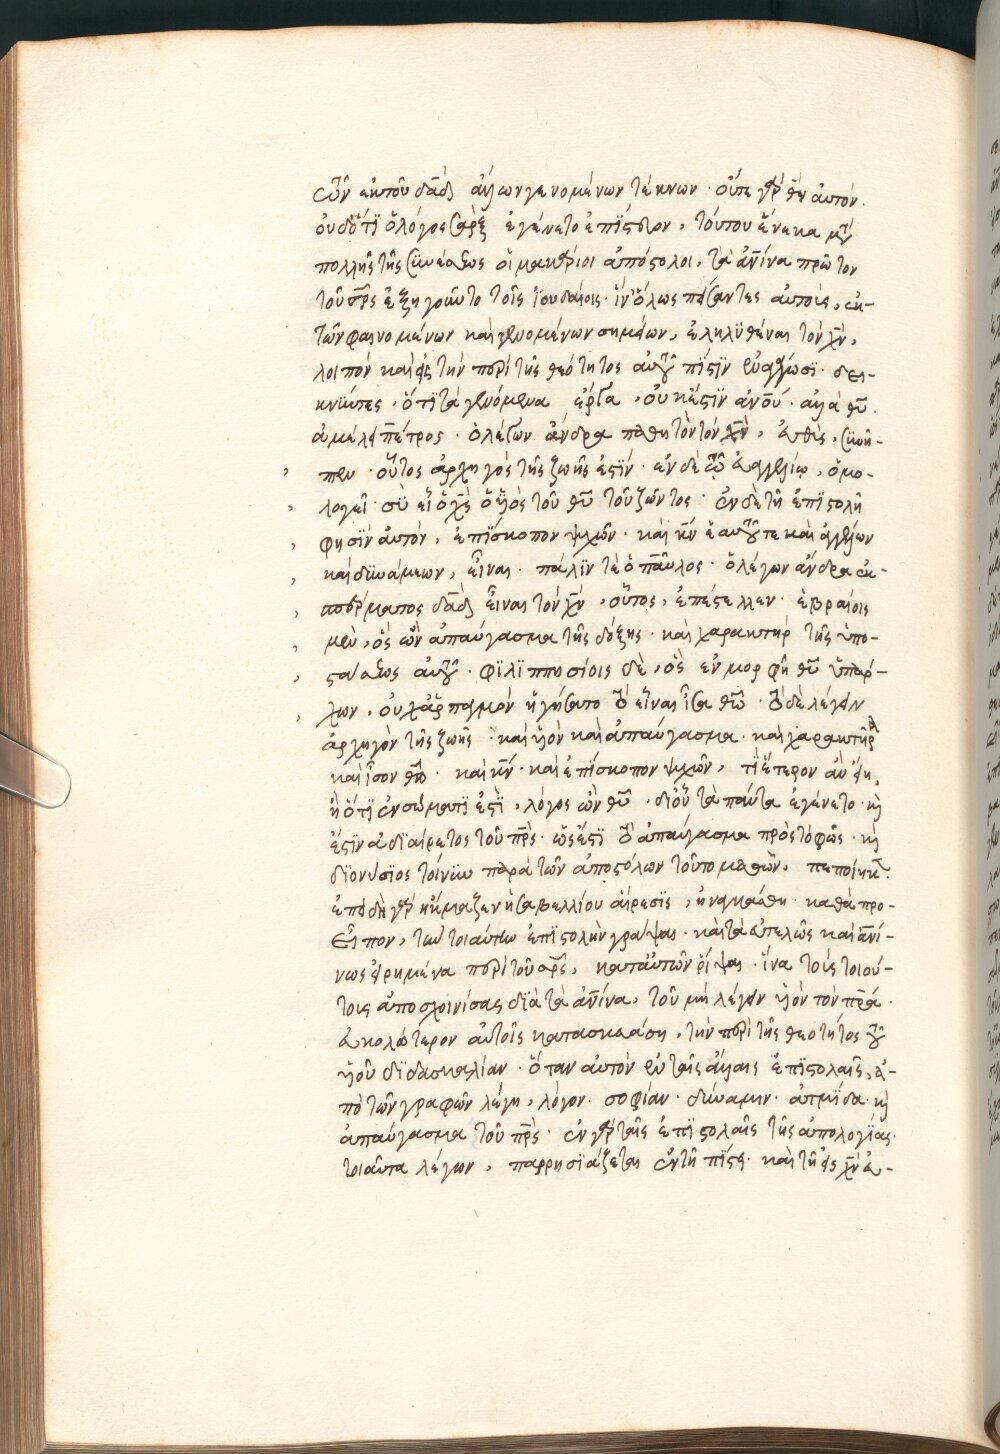 τῶν ἐκ τοῦ δᾱδ ἄλλων γενομένων τέκνων · οὔτε γὰρ θν̄ αὐτόν ·
οὐδ' ὅτι ὁ λόγος σὰρξ ἐγένετο ἐπίστευον, τούτου ἕνεκα μετὰ
πολλῆς τῆς συνέσεως οἱ μακάριοι ἀπόστολοι, τὰ ἀν̄ινα πρῶτον
τοῦ σρ̄ς ἐξηγοῦντο τοῖς ἰουδαίοις · ἵν' ὅλως πείσαντες αὐτοὺς, ἐκ-
τῶν φαινομένων καὶ γενομένων σημείων, ἐληλυθέναι τὸν χν̄,
λοιπὸν καὶ εἰς τὴν περὶ τῆς θεότητος αὐτοῦ πίστιν ἀναγάγωσι · δει-
κνύντες · ὅτι τὰ γενόμενα ἔργα, οὐκ ἔστιν ἀνοῦ · ἀλλὰ θῡ ·
ἀμέλει πέτρος · ὁ λέγων ἄνδρα παθητὸν τὸν χν̄, εὐθὺς, συνῆ-
πτεν · οὗτος ἀρχηγὸς τῆς ζωῆς ἐστίν · ἐν δὲ τῷ εὐαγγελίῳ, ὁμο-
λογεῖ · σὺ εἶ ὁ χς̄ ὁ υἱὸς τοῦ θῡ τοῦ ζῶντος · ἐν δὲ τῇ ἐπιστολῇ
φησὶν αὐτὸν, ἐπίσκοπον ψυχῶν · καὶ κν̄ ἑαυτοῦ τε καὶ ἀγγέλων
καὶ δυνάμεων, εἶναι · πάλιν τε ὁ παῦλος · ὁ λέγων ἄνδρα ἐκ-
σπέρματος δᾱδ εἶναι τὸν χν̄, οὗτος, ἐπέστελλεν · ἑβραίοις
μὲν, ὃς ὢν ἀπαύγασμα τῆς δόξης · καὶ χαρακτὴρ τῆς ὑπο-
στάσεως αὐτοῦ · φιλιππησίοις δὲ, ὃς ἐν μορφῇ θῡ ὑπάρ-
χων, οὐχ ἁρπαγμὸν ἡγήσατο τὸ εἶναι ἴσα θῶ · τὸ δὲ λέγειν
ἀρχηγὸν τῆς ζωῆς · καὶ υἱὸν καὶ ἀπαύγασμα · καὶ χαρακτῆρα
καὶ ἴσον θῶ · καὶ κν̄ · καὶ ἐπίσκοπον ψυχῶν, τί ἕτερον ἂν εἴη,
ἢ ὅτι ἐν σώματι ἐστὶ, λόγος ὢν θῡ · δι' οὗ τὰ πάντα ἐγένετο · κὶ
ἔστιν ἀδιαίρετος τοῦ πρ̄ς · ὥς ἐστι τὸ ἀπαύγασμα πρὸς τὸ φῶς · κὶ
διονύσιος τοίνυν παρὰ τῶν ἀποστόλων τοῦτο μαθὼν, πεποίηκε ·
ἐπειδὴ γὰρ ἤκμαζεν ἡ σαβελλίου αἵρεσις, ἠναγκάσθη · καθὰ προ-
εῖπον, τὴν τοιαύτην ἐπιστολὴν γράψαι · καὶ τὰ εὐτελῶς καὶ ἀν̄ί-
νως εἰρημένα περὶ τοῦ σρ̄ς, κατ' αὐτῶν ῥίψαι · ἵνα τοὺς τοιού-
τους ἀποσχοινίσας διὰ τὰ ἀν̄ινα, τοῦ μὴ λέγειν υἱὸν τὸν πρ̄α ·
εὐκολώτερον αὐτοῖς κατασκευάσῃ, τὴν περὶ τῆς θεότητος τοῦ
υἱοῦ διδασκαλίαν · ὅταν αὐτὸν ἐν ταῖς ἄλλαις ἐπιστολαῖς, ἀ-
πὸ τῶν γραφῶν λέγῃ, λόγον · σοφίαν · δύναμιν · ἀτμίδα · κὶ
ἀπαύγασμα τοῦ πρ̄ς · ἐν γὰρ ταῖς ἐπιστολαῖς τῆς ἀπολογίας ·
τοιαῦτα λέγων, παρρησιάζεται ἐν τῇ πίστει · καὶ τῇ εἰς χν̄ εὐ-